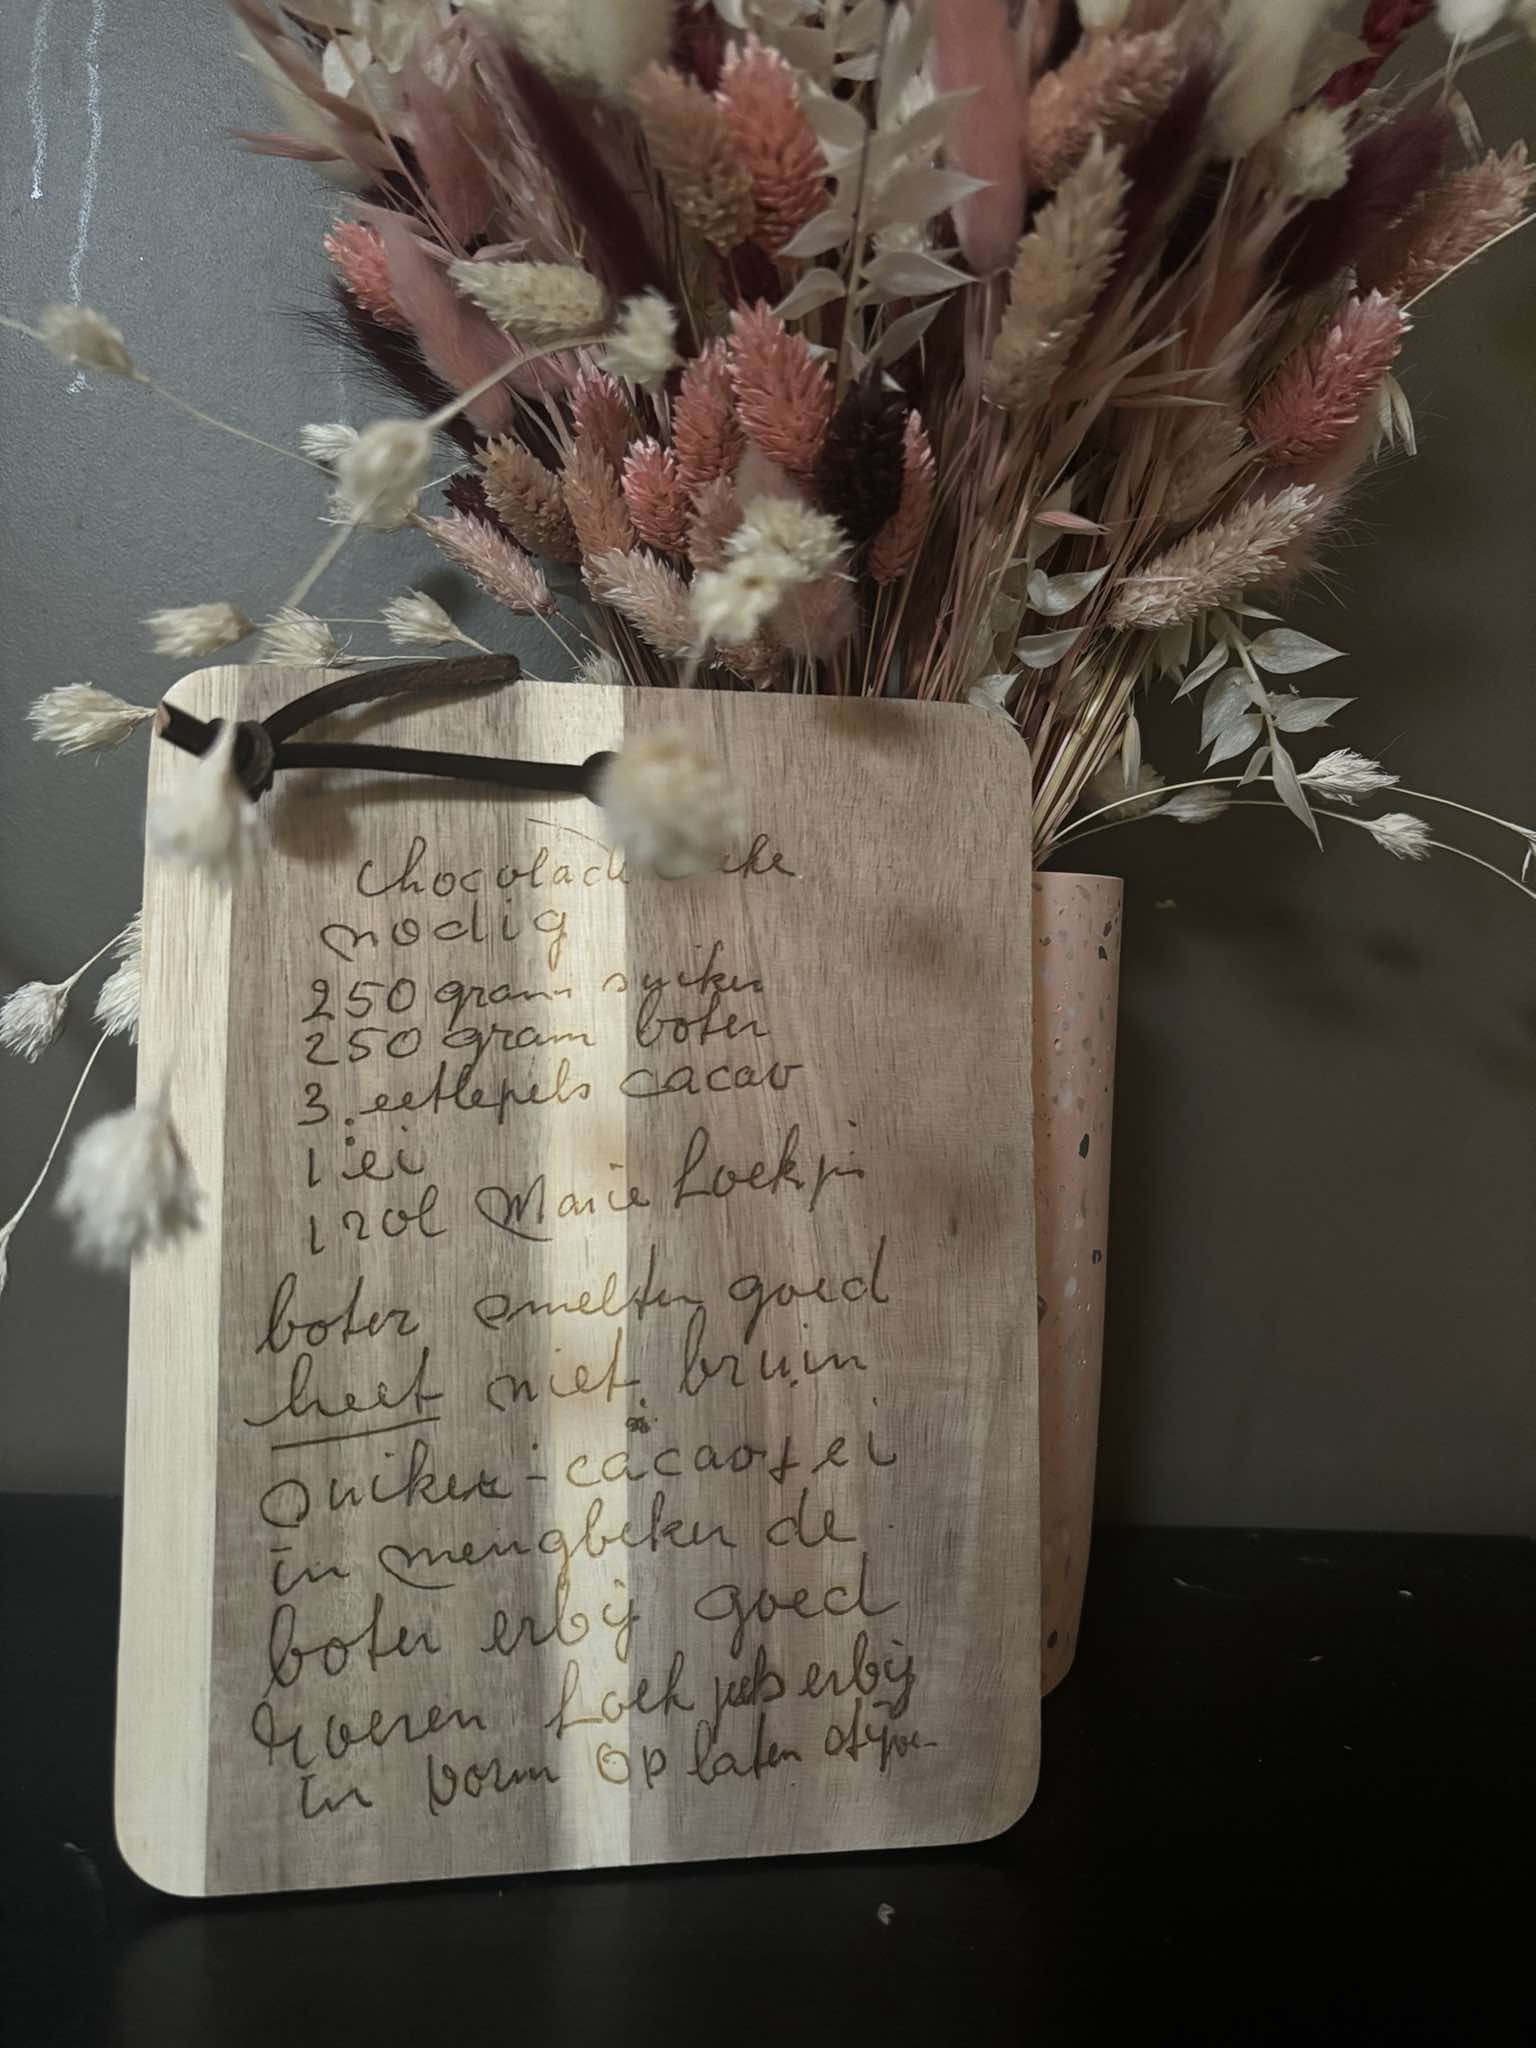 nodig
250 gram suiker
250 gram boter
3 eetlepels cacao
1 ei
1 rol Marie koekjes
boter smelten goed
heet niet bruin
suiker - cacao + ei
in mengbeker de
boter erbij goed
roeren koekjes erbij
in vorm op laten stijven